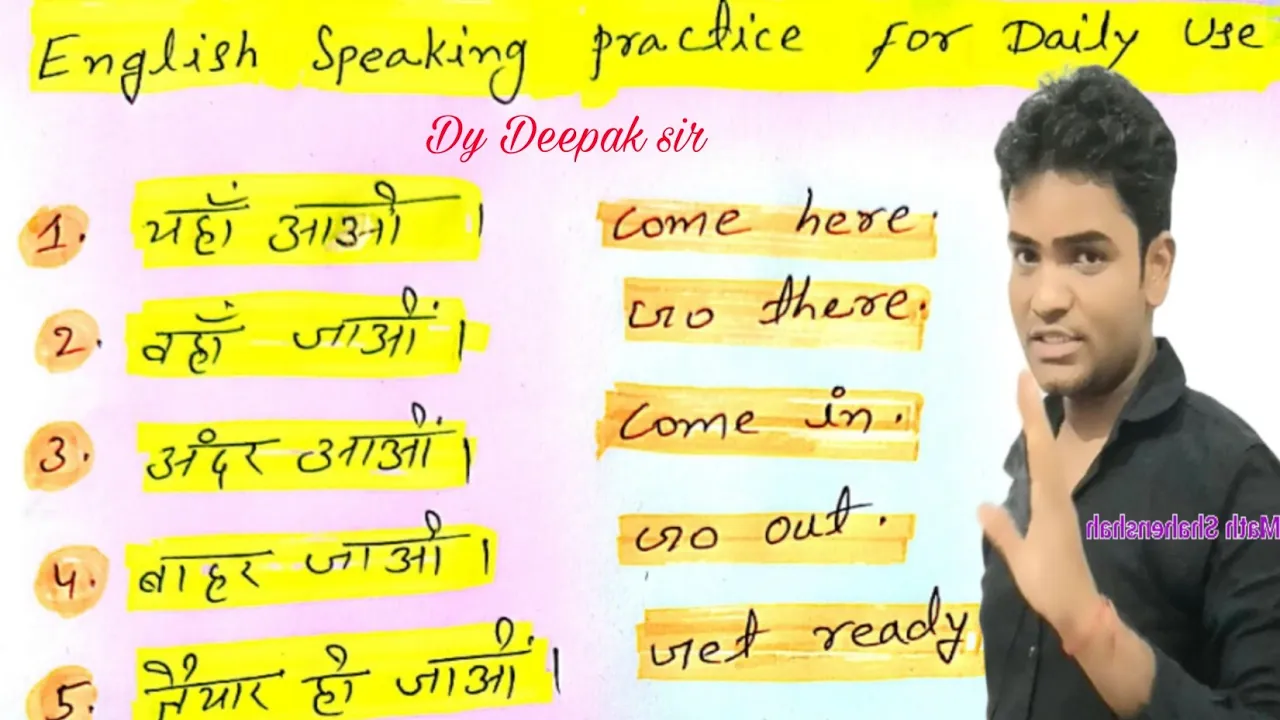 English Speaking practice for Daily Use
Dy Deepak sir
1. यहाँ आओ। come here.
2. वहाँ जाओ। Go there.
3. अंदर आओ। come in.
4. बाहर जाओ। Go out.
5. तैयार हो जाओ। Get ready
Math Shahenshah